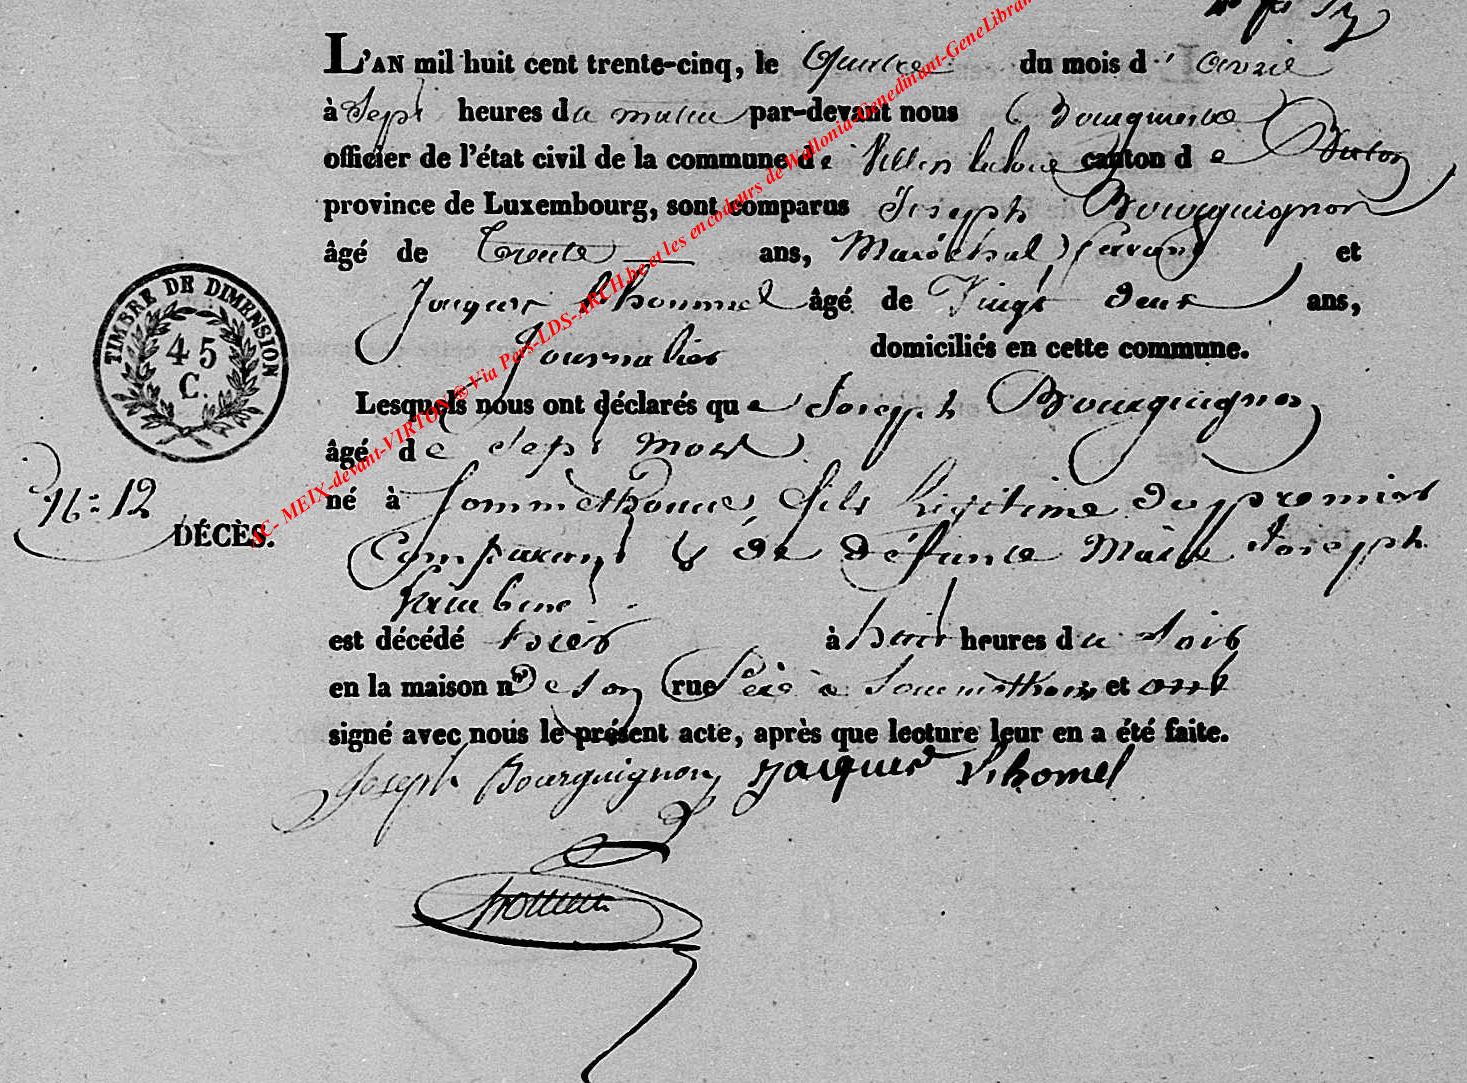 L'AN mil huit cent trente-cinq, le Quinze du mois d'avril
à Sept heures du matin par-devant nous
officier de l'état civil de la commune de Villers la loue canton de Virton
province de Luxembourg, sont comparus Joseph Bourguignon
âgé de Trente ans, Maréchal ferrant et
Jacques Lhommel âgé de Vingt deux ans,
Journalier domiciliés en cette commune.
Lesquels nous ont déclarés que Joseph Bourguignon
âgé de Sept mois
né à Sommethonne, fils légitime du premier
Comparant & de défunte Marie Joseph
est décédé hier à huit heures du soir
en la maison n° de son rue Père à Sommethonne et ont
signé avec nous le présent acte, après que lecture leur en a été faite.
Joseph Bourguignon Jacques Lhomel
TIMBRE DE DIMENSION
45
C.
N° 12
DÉCÈS.
AC- MEIX-devant-VIRTON ® Via Pers-LDS-ARCH.be et les encodeurs de Wallonia-Genedinant-GeneLibran